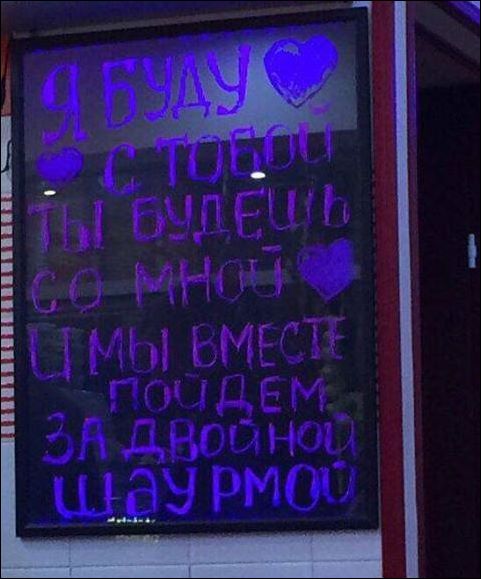 Я БУДУ
С ТОБОЙ
ТЫ БУДЕШЬ
СО МНОЙ
И МЫ ВМЕСТЕ
ПОЙДЕМ
ЗА ДВОЙНОЙ
ШАУРМОЙ